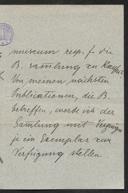 museum resp. f. die
B. samlung zu
Von meinen nächsten
Publikationen, die B.
betreffen, werde ich der
Samlung mit Vergnügen
je ein Exemplar zur
Verfügung stellen.